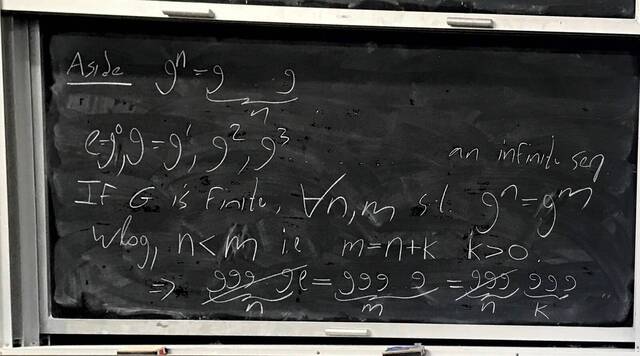 Aside gⁿ = g g
n
e=g⁰, g=g¹, g², g³ . . . . . . an infinite seq.
If G is finite, ∀n,m s.t. gⁿ=gᵐ
Wlog, n<m ie m=n+k k>0.
⇒ ggg ge = ggg g = ggg ggg
n m n k